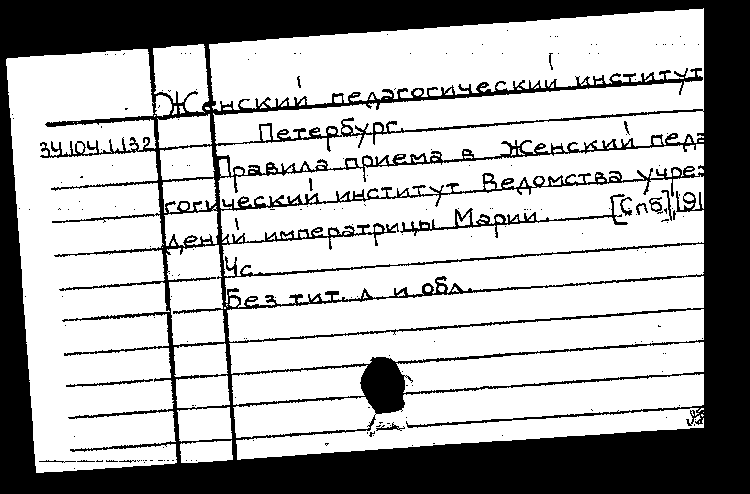 Женский педагогический институт
Петербург.
34.104.1.132
Правила приема в Женский педа
гогический институт Ведомства учреж
дений императрицы Марии. [Спб.], 191
4с.
Без тит. л. и обл.